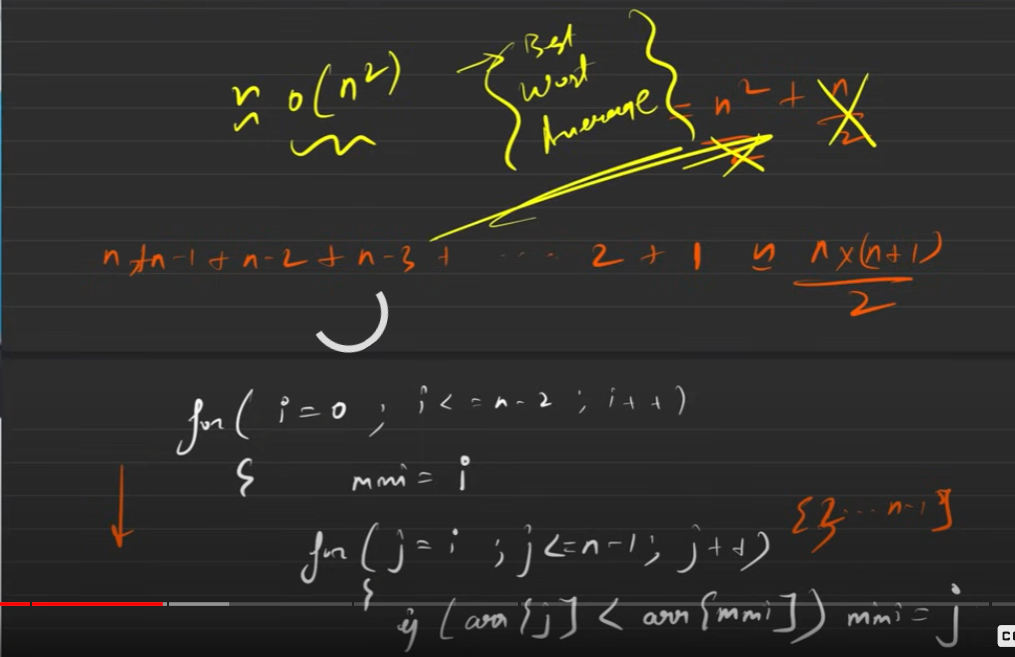 ≈ O(n²) → { Best
Worst
Average }
= n²/2 + n/2
n+n-1+n-2+n-3+ ..... 2+1 ≈ n×(n+1)/2
for( i=0 ; i<=n-2 ; i++)
{ mini = i
for( j=i ; j<=n-1; j++)
{
if (arr[j] < arr[mini]) mini = j